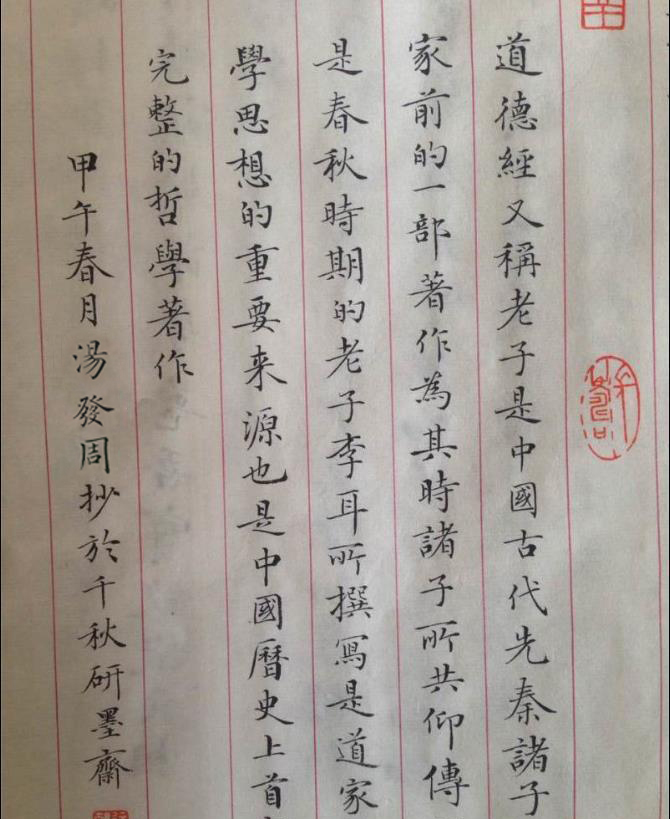 道德經又稱老子是中國古代先秦諸子
家前的一部著作為其時諸子所共仰傳
是春秋時期的老子李耳所撰寫是道家
學思想的重要来源也是中國曆史上首
完整的哲學著作
甲午春月湯發周抄於千秋研墨齋